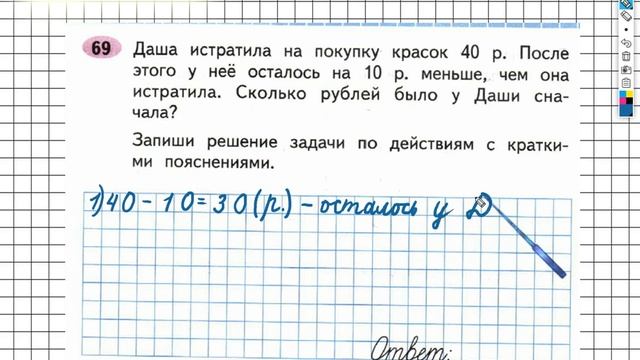 69 Даша истратила на покупку красок 40 р. После
этого у неё осталось на 10 р. меньше, чем она
истратила. Сколько рублей было у Даши сна-
чала?
Запиши решение задачи по действиям с кратки-
ми пояснениями.
1)40-10=30(р.) - осталось у Д
Ответ: